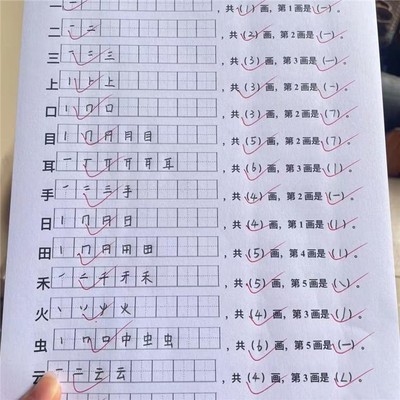 一 一 ，共（1）画，第1画是（一）。
二 一 二 ，共（2）画，第2画是（一）。
三 一 二 三 ，共（3）画，第3画是（一）。
上 丨 ⺊ 上 ，共（3）画，第2画是（一）。
口 丨 冂 口 ，共（3）画，第2画是（㇕）。
目 丨 冂 月 月 目 ，共（5）画，第2画是（㇕）。
耳 一 丅 丌 耳 耳 耳 ，共（6）画，第3画是（丨）。
手 一 二 三 手 ，共（4）画，第2画是（一）。
日 丨 冂 月 日 ，共（4）画，第1画是（丨）。
田 丨 冂 月 用 田 ，共（5）画，第4画是（丨）。
禾 一 二 千 禾 禾 ，共（5）画，第5画是（㇏）。
火 丶 丷 火 火 ，共（4）画，第3画是（丿）。
虫 丨 冂 口 中 虫 虫 ，共（6）画，第5画是（一）。
云 一 二 云 云 ，共（4）画，第3画是（㇜）。